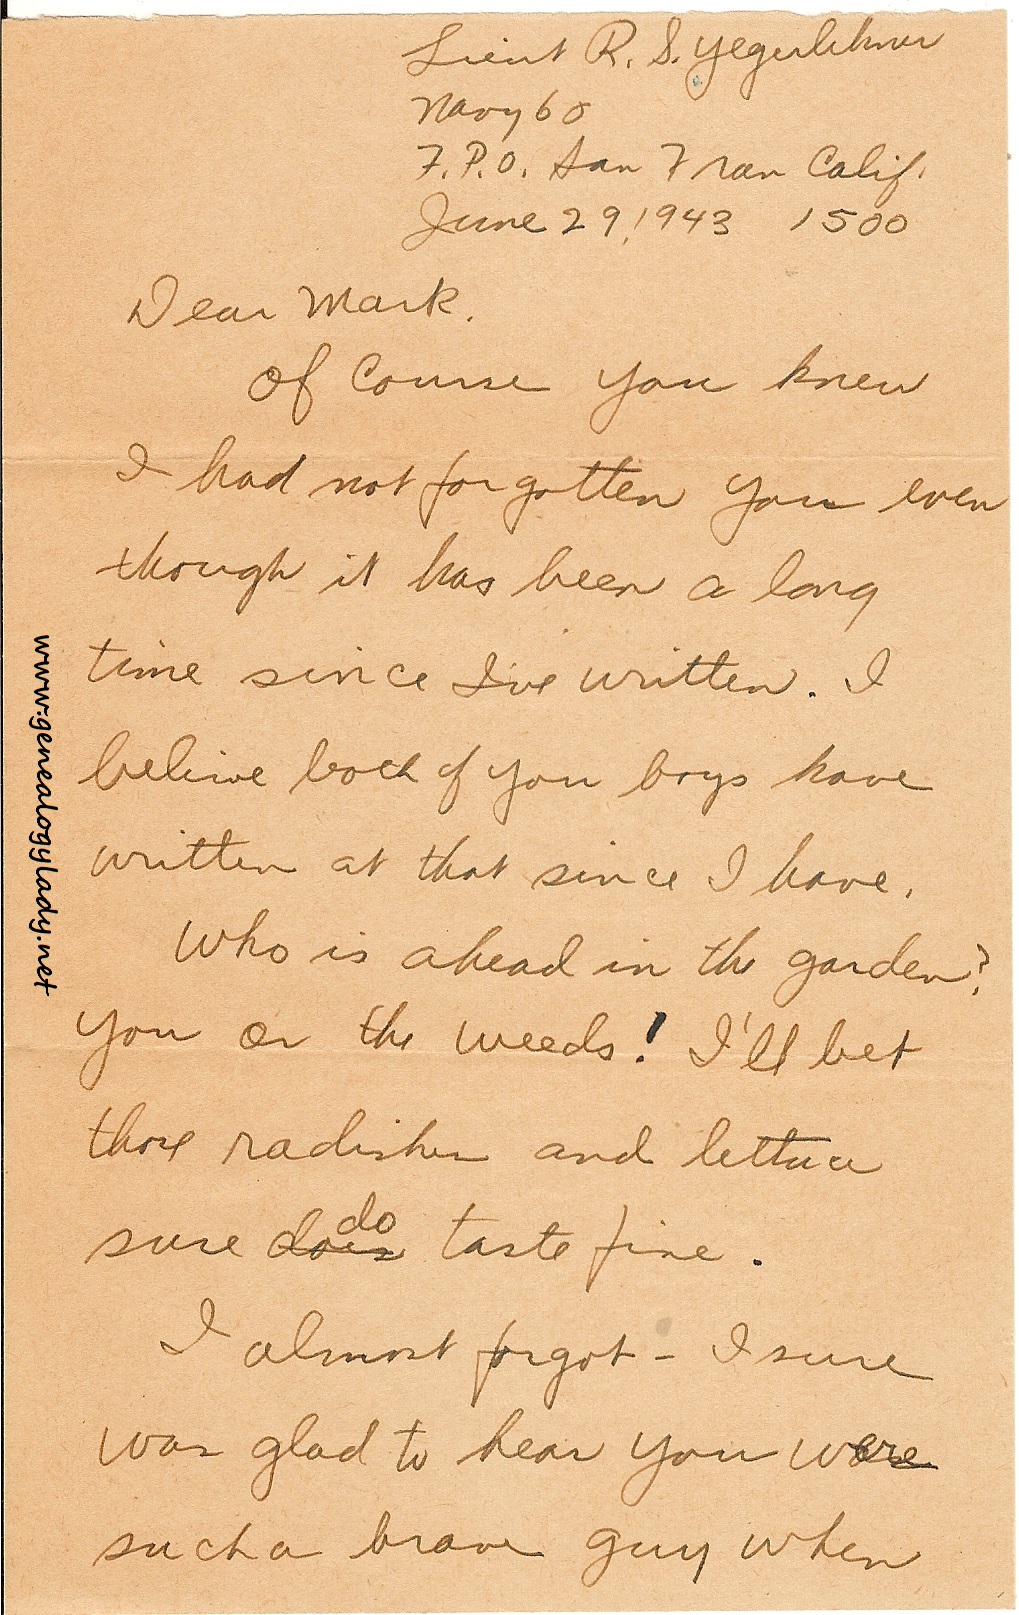 Lieut R. S. Yegerlehner
Navy 60
F.P.O. San Fran Calif.
June 29, 1943 1500
Dear Mark.
Of course you knew
I had not forgotten you even
though it has been a long
time since I've written. I
belive both of you boys have
written at that since I have.
Who is ahead in the garden?
You or the weeds! I'll bet
those radishes and lettuce
sure does do taste fine.
I almost forgot - I sure
was glad to hear you were
such a brave guy when
www.genealogylady.net